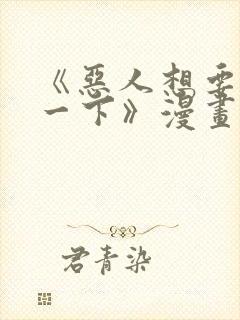 《惡人想要
一下》漫畫
君青染